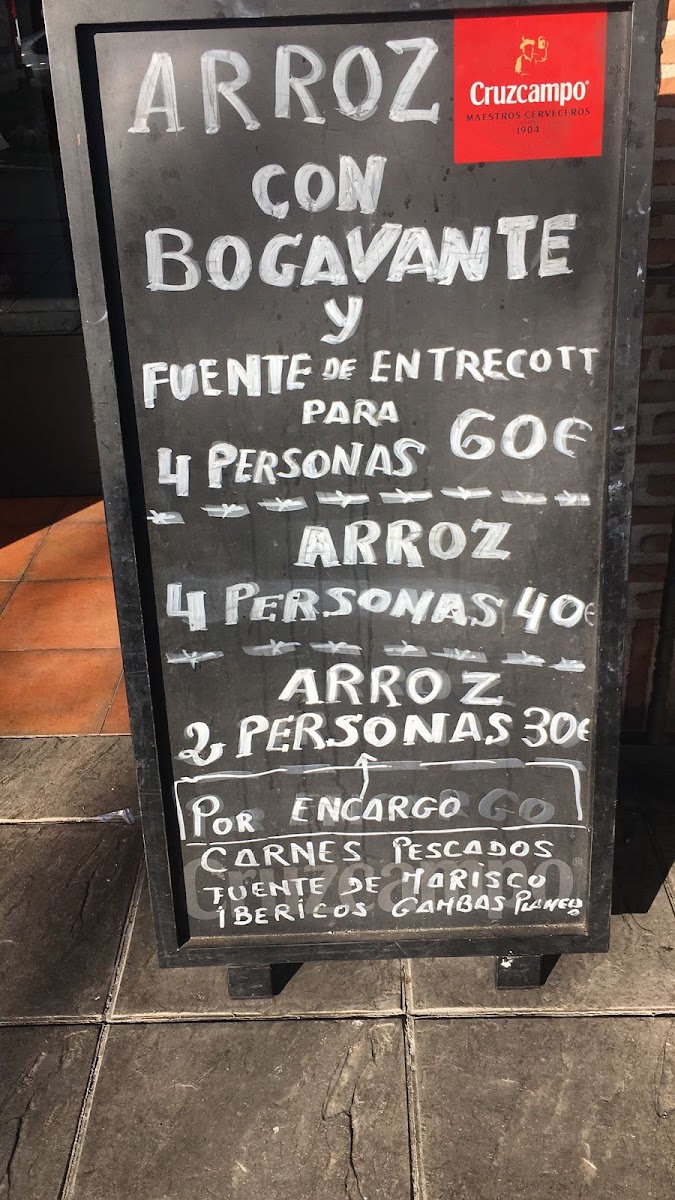 ARROZ
Cruzcampo®
MAESTROS CERVECEROS
1904
CON
BOGAVANTE
y
FUENTE DE ENTRECOTT
PARA
4 PERSONAS 60€
ARROZ
4 PERSONAS 40€
ARROZ
2 PERSONAS 30€
POR ENCARGO
CARNES PESCADOS
FUENTE DE MARISCO
IBERICOS GAMBAS
Cruzcampo®